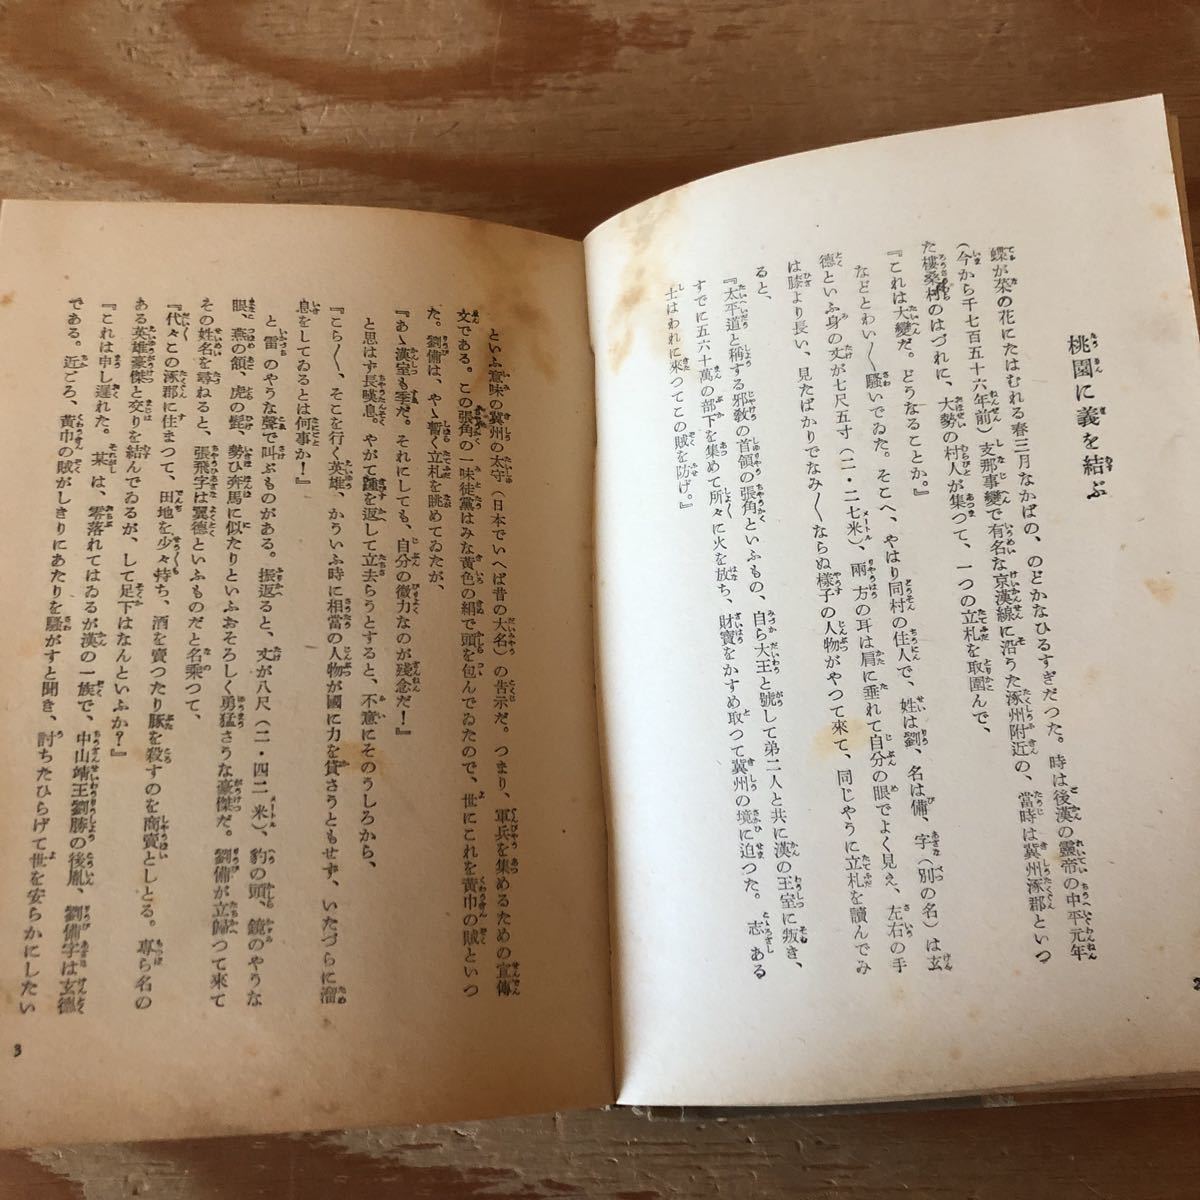 桃園に義を結ぶ
蝶が菜の花にたはむれる春三月なかばの、のどかなひるすぎだつた。時は後漢の靈帝の中平元年
(今から千七百五十六年前)支那事變で有名な京漢線に沿うた涿州附近の、當時は冀州涿郡といつ
た樓桑村のはづれに、大勢の村人が集つて、一つの立札を取圍んで、
『これは大變だ。どうなることか。』
などとわい〱騷いでゐた。そこへ、やはり同村の住人で、姓は劉、名は備、字(別の名)は玄
德といふ身の丈が七尺五寸(二・二七米)、兩方の耳は肩に垂れて自分の眼でよく見え、左右の手
は膝より長い、見たばかりでなみ〱ならぬ樣子の人物がやつて來て、同じやうに立札を讀んでみ
ると、
『太平道と稱する邪敎の首領の張角といふもの、自ら大王と號して弟二人と共に漢の王室に叛き、
すでに五六十萬の部下を集めて所々に火を放ち、財寶をかすめ取つて冀州の境に迫つた。志ある
士はわれに來つてこの賊を防げ。』
2
といふ意味の冀州の太守(日本でいへば昔の大名)の吿示だ。つまり、軍兵を集めるための宣傳
文である。この張角の一味徒黨はみな黃色の絹で頭を包んでゐたので、世にこれを黃巾の賊といつ
た。劉備は、やゝ暫く立札を眺めてゐたが、
『あゝ漢室も季だ。それにしても、自分の微力なのが殘念だ!』
と思はず長嘆息。やがて踵を返して立去らうとすると、不意にそのうしろから、
『こら〱、そこを行く英雄、かういふ時に相當の人物が國に力を貸さうともせず、いたづらに溜
息をしてゐるとは何事か!』
と雷のやうな聲で叫ぶものがある。振返ると、丈が八尺(二・四二米)、豹の頭、鏡のやうな
眼、燕の頷、虎の髭、勢ひ奔馬に似たりといふおそろしく勇猛さうな豪傑だ。劉備が立歸つて來て
その姓名を尋ねると、張飛字は翼德といふものだと名乘つて、
『代々この涿郡に住まつて、田地を少々持ち、酒を賣つたり豚を殺すのを商賣としとる。專ら名の
ある英雄豪傑と交りを結んでゐるが、して足下はなんといふか?』
『これは申し遲れた。某は、零落れてはゐるが漢の一族で、中山靖王劉勝の後胤、劉備字は玄德
である。近ごろ、黃巾の賊がしきりにあたりを騷がすと聞き、討ちたひらげて世を安らかにしたい
3